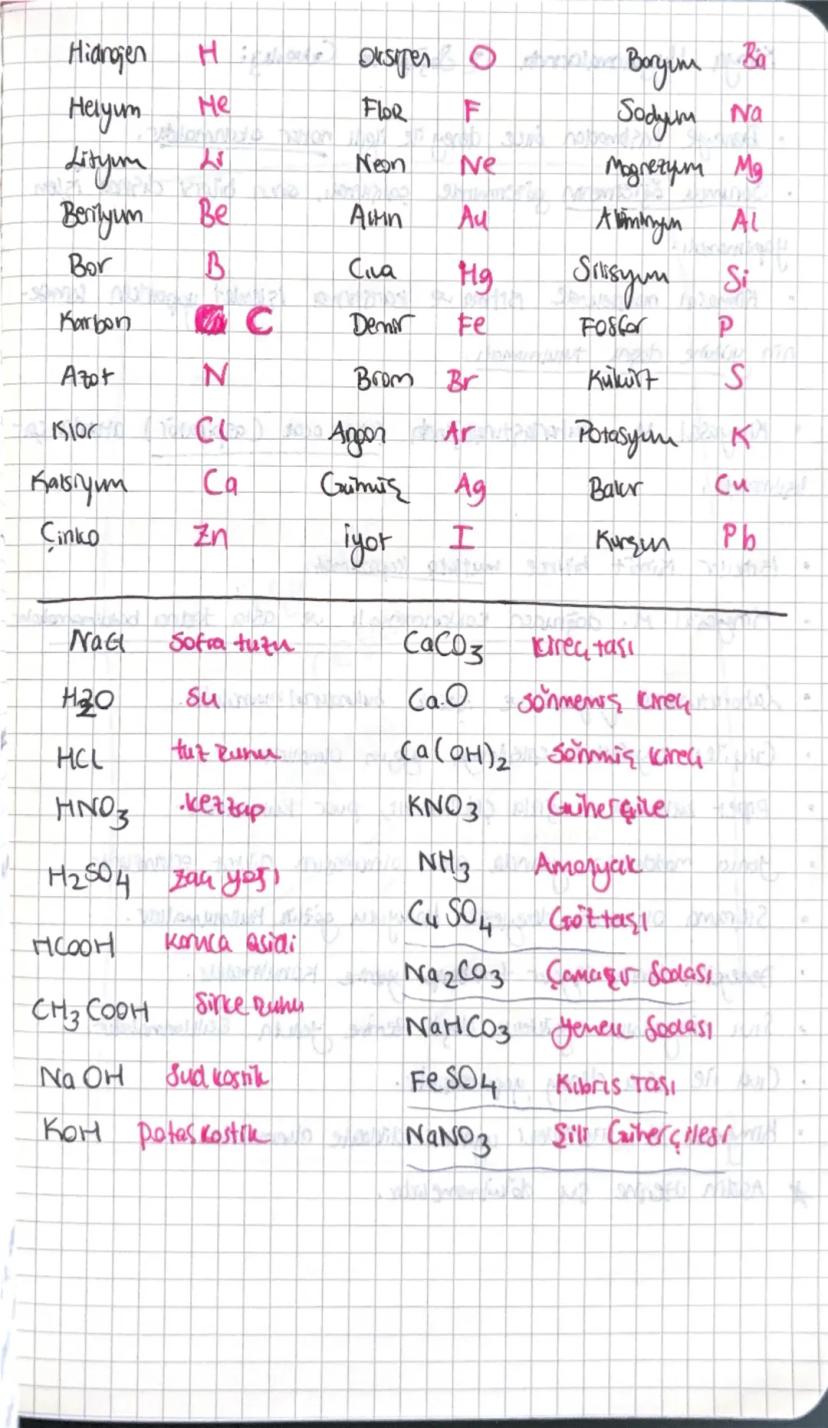 Hidrojen H Oksijen O Baryum Ba
Helyum He Flor F Sodyum Na
Lityum Li Neon Ne Magnezyum Mg
Berilyum Be Altın Au Alüminyum Al
Bor B Cıva Hg Silisyum Si
Karbon C Demir Fe Fosfor P
Azot N Brom Br Kükürt S
Klor Cl Argon Ar Potasyum K
Kalsiyum Ca Gümüş Ag Bakır Cu
Çinko Zn İyot I Kurşun Pb
NaCl Sofra tuzu CaCO3 Kireç taşı
H2O Su CaO Sönmemiş kireç
HCL tuz ruhu Ca(OH)2 Sönmüş kireç
HNO3 kezzap KNO3 Güherçile
H2SO4 zaç yağı NH3 Amonyak
HCOOH karınca asidi CuSO4 Göztaşı
CH3COOH Sirke ruhu Na2CO3 Çamaşır Sodası
NaOH Sud kostik NaHCO3 Yemek Sodası
KOH potas kostik FeSO4 Kıbrıs Taşı
NaNO3 Şili Güherçilesi